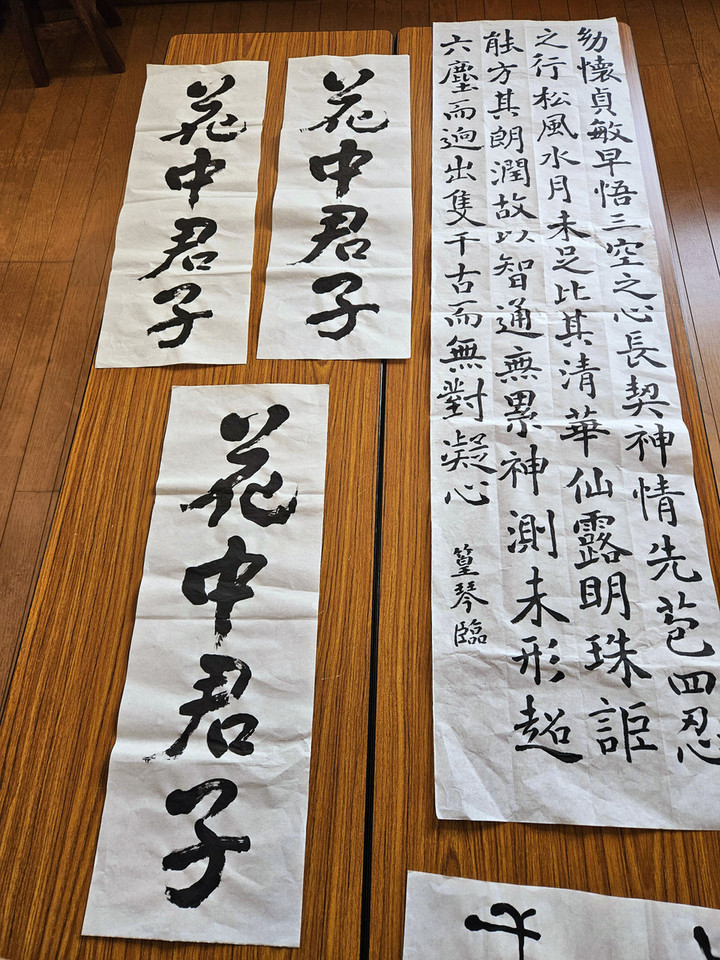 幼懷貞敏早悟三空之心長契神情先苞四忍
之行松風水月未足比其清華仙露明珠詎
能方其朗潤故以智通無累神測未形超
六塵而逈出隻千古而無對凝心
篁琴臨
花中君子
花中君子
花中君子